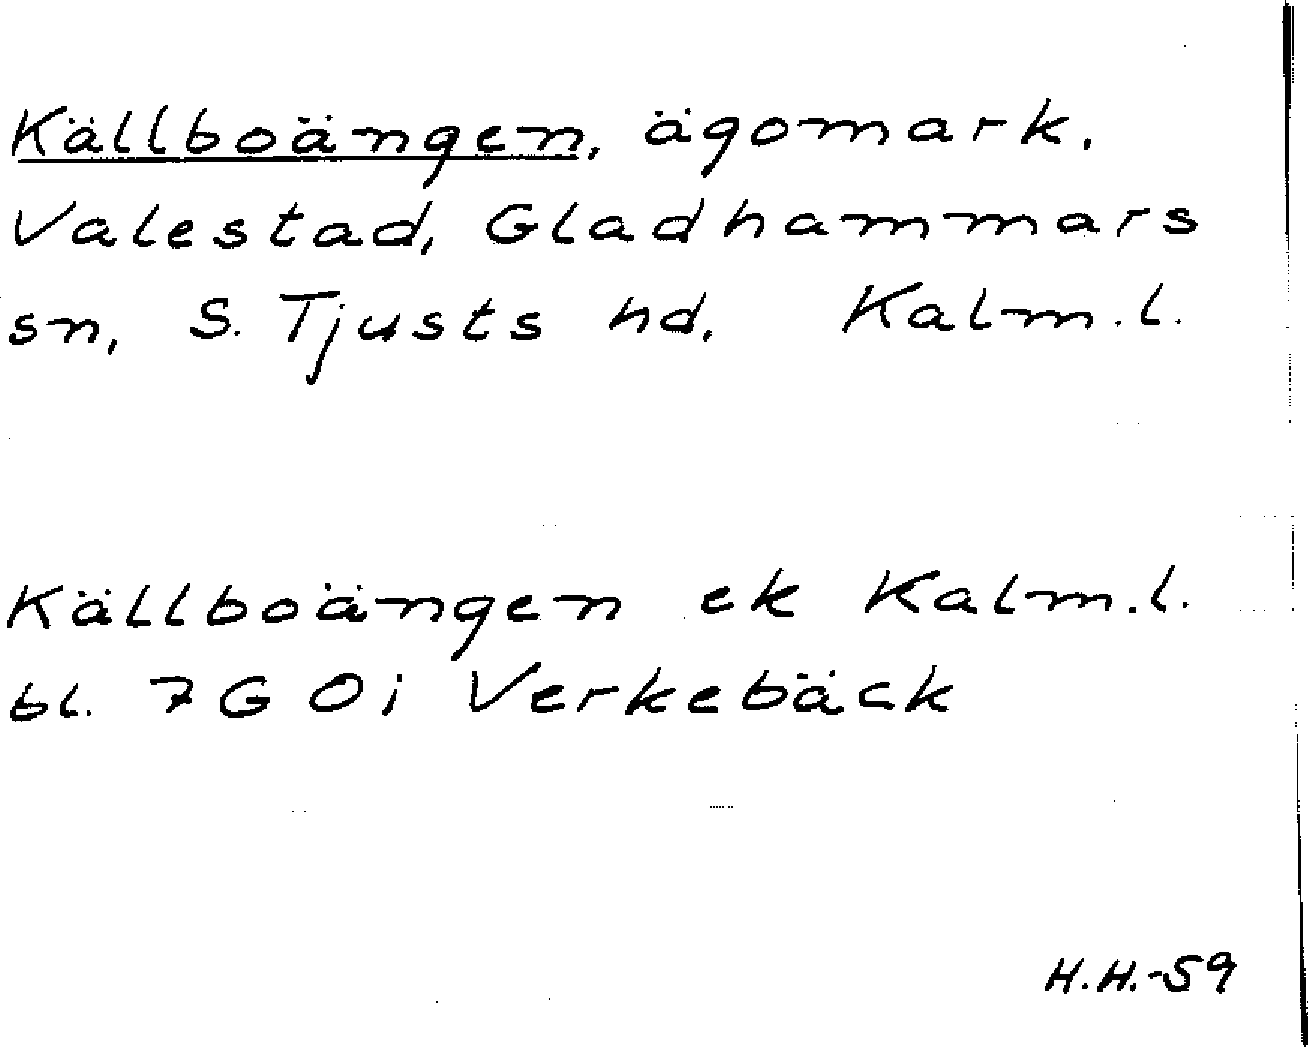 Källboängen, ägomark,
Valestad, Gladhammars
sn, S. Tjusts hd, Kalm.l.
Källboängen ek Kalm.l.
bl. 7 G 0i Verkebäck
H.H.-59